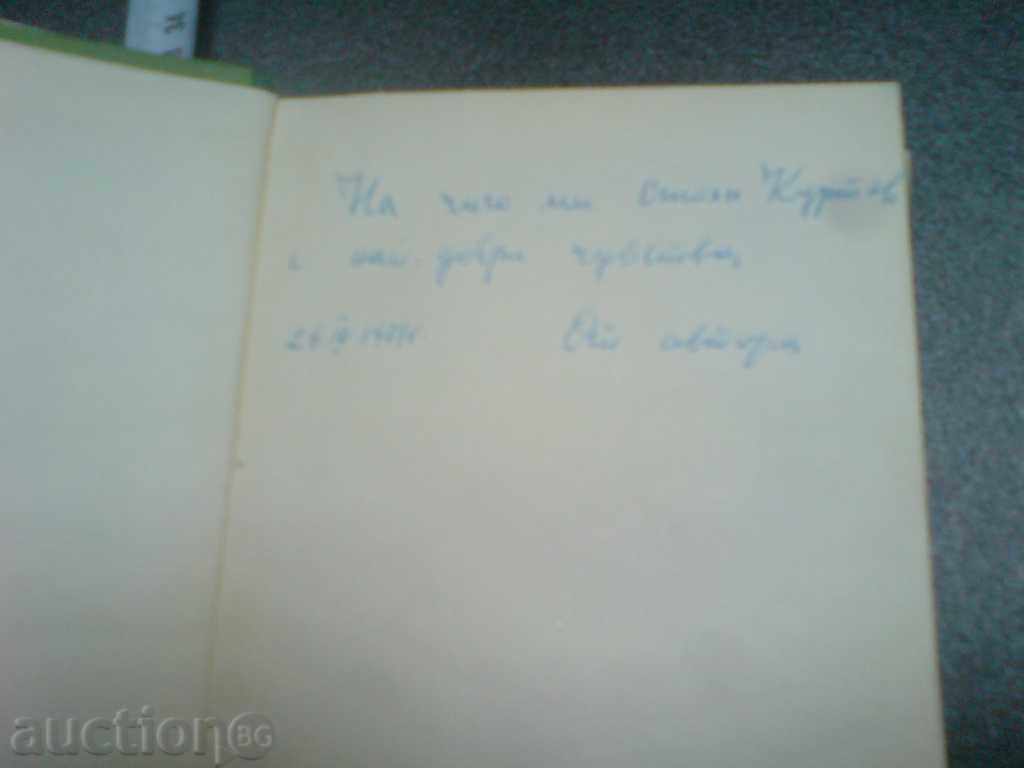 На чичо ми Стоян
с най-добри чувства
26 IV От автора
auction BG